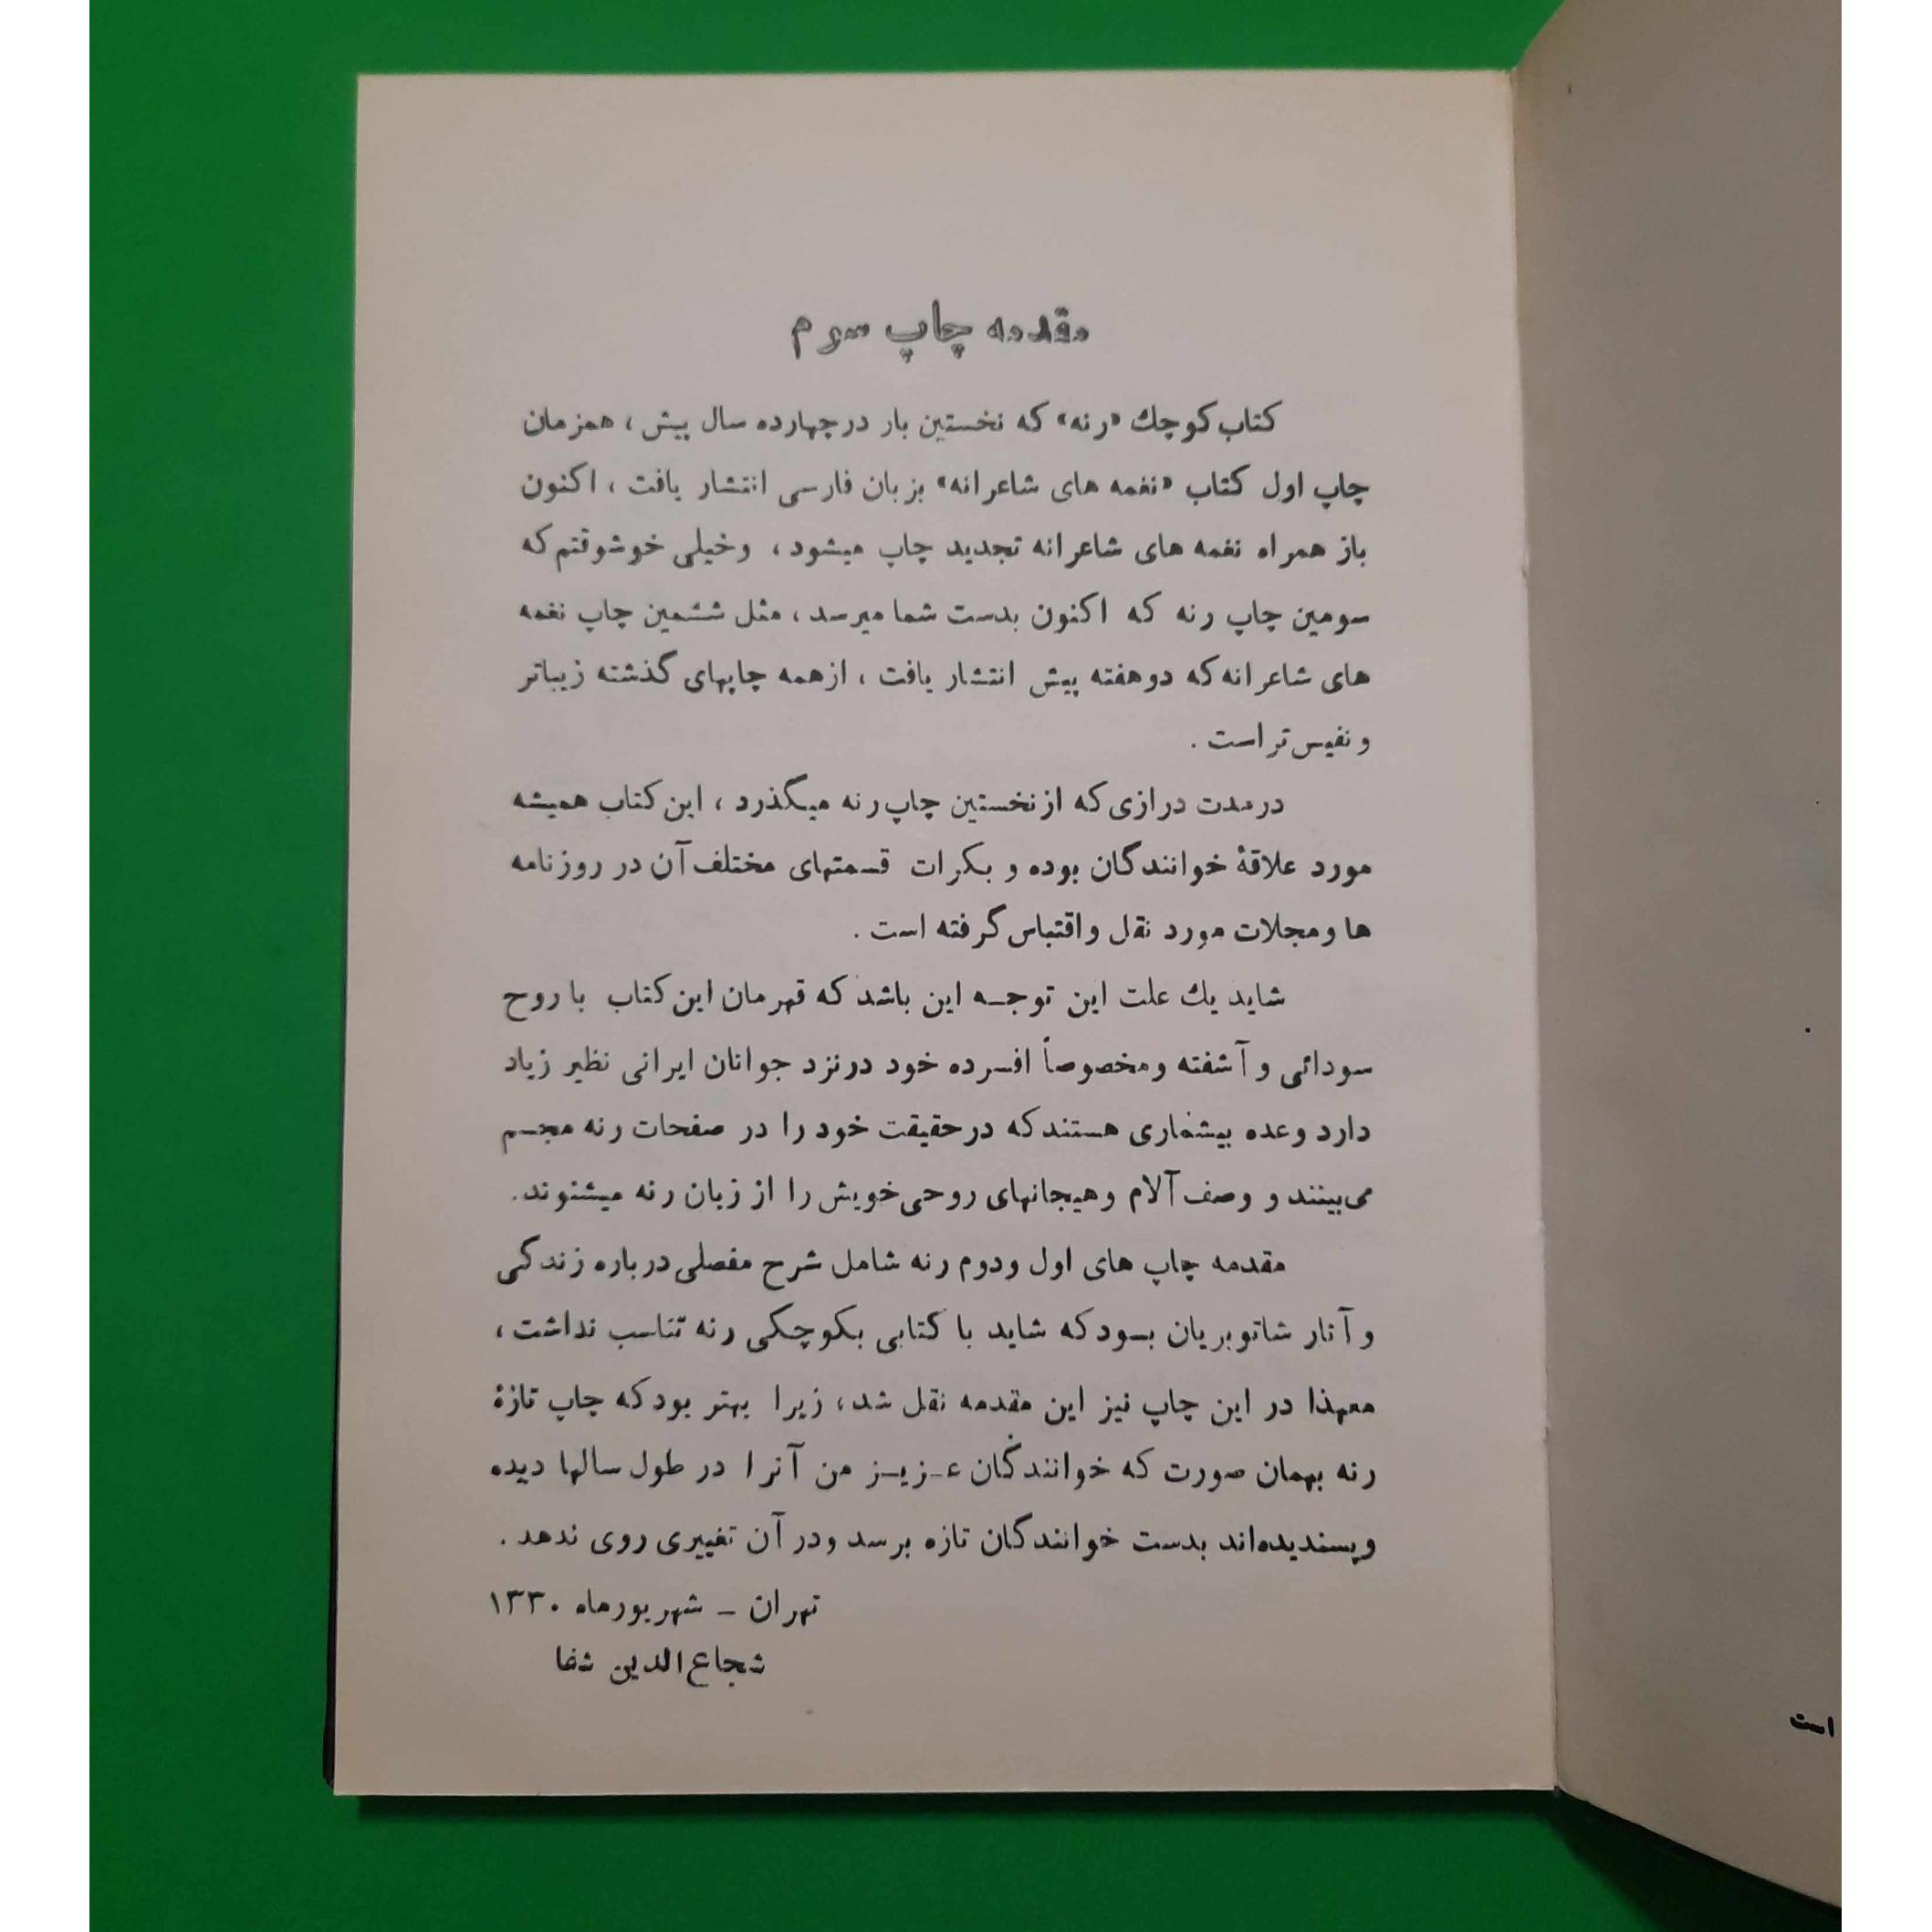 مقدمه چاپ سوم
کتاب کوچك «رنه» که نخستین بار در چهارده سال پیش ، همزمان
چاپ اول کتاب «نغمه های شاعرانه» بزبان فارسی انتشار یافت ، اکنون
باز همراه نغمه های شاعرانه تجدید چاپ میشود ، و خیلی خوشوقتم که
سومین چاپ رنه که اکنون بدست شما میرسد ، مثل ششمین چاپ نغمه
های شاعرانه که دو هفته پیش انتشار یافت ، از همه چاپهای گذشته زیباتر
و نفیس تر است .
در مدت درازی که از نخستین چاپ رنه میگذرد ، این کتاب همیشه
مورد علاقهٔ خوانندگان بوده و بکرات قسمتهای مختلف آن در روزنامه
ها و مجلات مورد نقل و اقتباس گرفته است .
شاید یك علت این توجه این باشد که قهرمان این کتاب با روح
سودائی و آشفته و مخصوصاً افسرده خود در نزد جوانان ایرانی نظیر زیاد
دارد و عده بیشماری هستند که در حقیقت خود را در صفحات رنه مجسم
می بینند و وصف آلام و هیجانهای روحی خویش را از زبان رنه میشنوند.
مقدمه چاپ های اول و دوم رنه شامل شرح مفصلی درباره زندگی
و آثار شاتوبریان بود که شاید با کتابی بکوچکی رنه تناسب نداشت ،
معهذا در این چاپ نیز این مقدمه نقل شد ، زیرا بهتر بود که چاپ تازهٔ
رنه بهمان صورت که خوانندگان عزیز من آنرا در طول سالها دیده
و پسندیده‌اند بدست خوانندگان تازه برسد و در آن تغییری روی ندهد .
تهران ـ شهریورماه ۱۳۳۰
شجاع الدین شفا
است